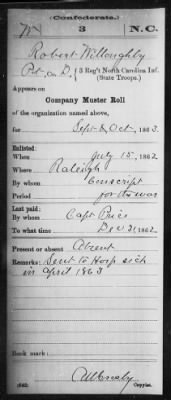 (Confederate.)
W 3 N.C.
Robert Willoughby
Pvt, Co. D, { 3 Reg't North Carolina Inf.
(State Troops.)
Appears on
Company Muster Roll
of the organization named above,
for Sept & Oct, 1863.
Enlisted:
When July 15, 1862.
Where Raleigh
By whom Conscript
Period for the war
Last paid:
By whom Capt Price
To what time Dec 31, 1862.
Present or absent Absent
Remarks: Sent to Hosp sick
in April 1863
Book mark:
(642)
Copyist.